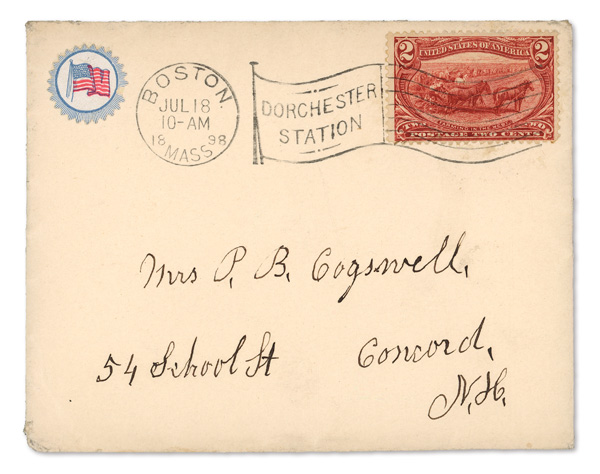 BOSTON
JUL 18
10-AM
18 98
MASS.
DORCHESTER
STATION
2 2
UNITED STATES OF AMERICA
FARMING IN THE WEST
TWO TWO
POSTAGE TWO CENTS
Mrs P. B. Cogswell,
54 School St Concord,
N.H.